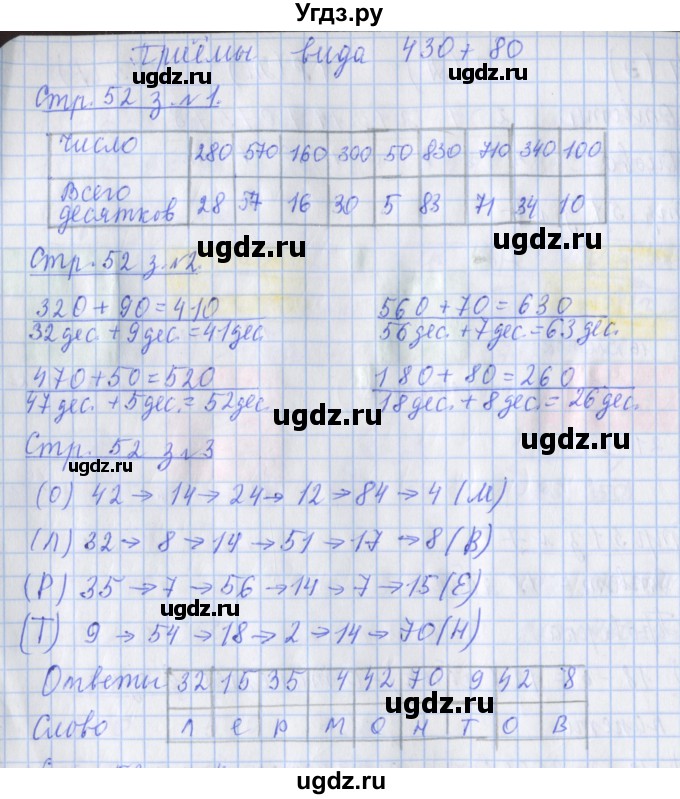 Угдз.ру
Приёмы вида 430 + 80
ugdz.ru ugdz.ru
Стр. 52 з. №1.
ugdz.ru
Число 280 570 160 300 50 830 710 340 100
Всего десятков 28 57 16 30 5 83 71 34 10
ugdz.ru ugdz.ru
Стр. 52 з. №2.
320 + 90 = 410 560 + 70 = 630
32 дес. + 9 дес. = 41 дес. 56 дес. + 7 дес. = 63 дес.
470 + 50 = 520 180 + 80 = 260
47 дес. + 5 дес. = 52 дес. 18 дес. + 8 дес. = 26 дес.
ugdz.ru ugdz.ru
Стр. 52 з №3
(О) 42 → 14 → 24 → 12 → 84 → 4 (М)
ugdz.ru
(Л) 32 → 8 → 14 → 51 → 17 → 8 (В)
(Р) 35 → 7 → 56 → 14 → 7 → 15 (Е)
ugdz.ru ugdz.ru
(Т) 9 → 54 → 18 → 2 → 14 → 70 (Н)
Ответы 32 15 35 4 42 70 9 42 8
ugdz.ru ugdz.ru
Слово Л е р м о н т о в
ugdz.ru